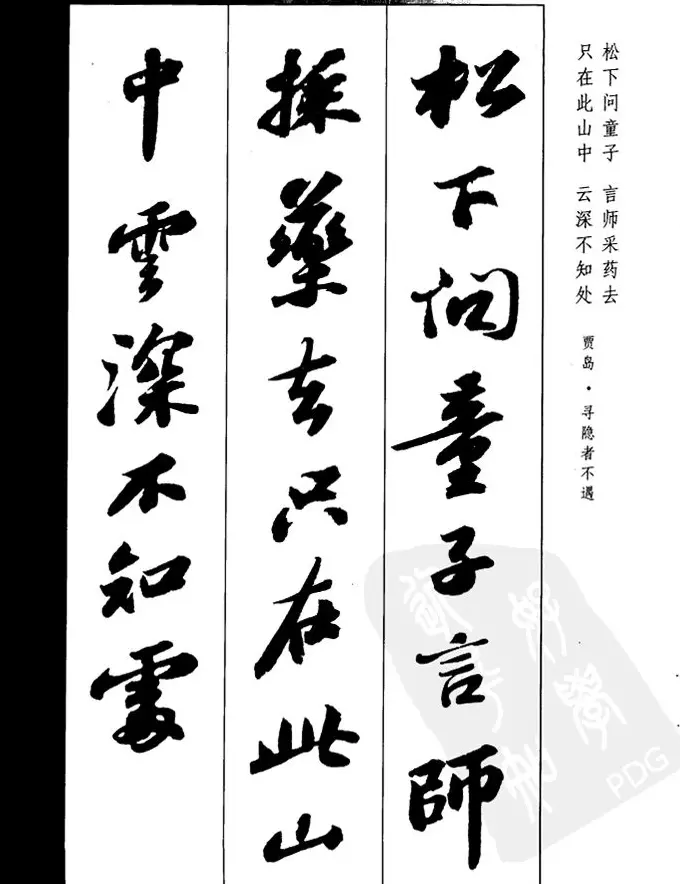 松下问童子 言师采药去
只在此山中 云深不知处
贾岛·寻隐者不遇
松下問童子言師
採藥去只在此山
中雲深不知處
PDG